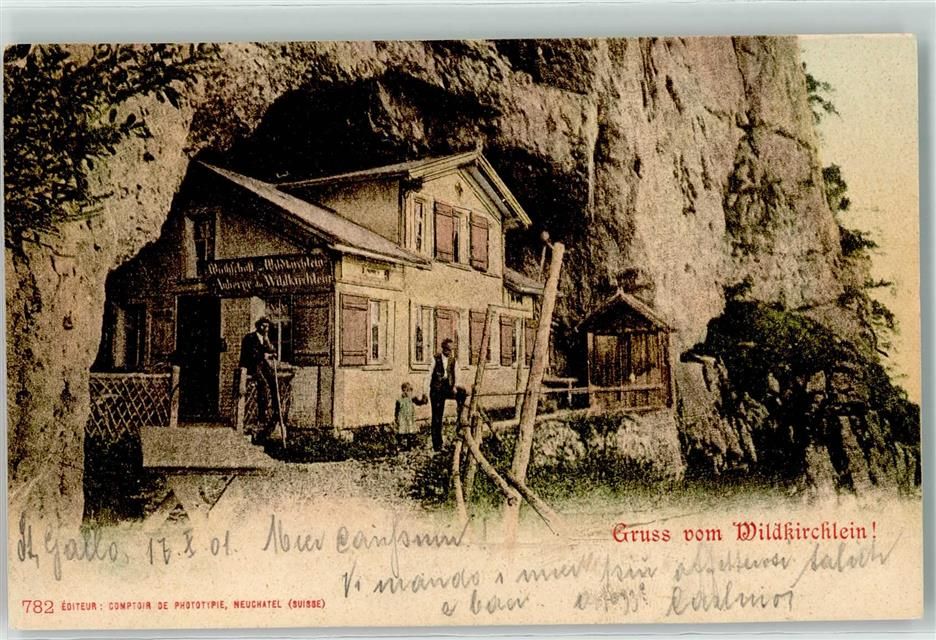 Wirthschaft z. Wildkirchlein
Auberge d. Wildkirchlein
Gruss vom Wildkirchlein!
St. Gallo, 17.X 01. Miei carissimi!
Vi mando i miei più affettuosi saluti
e baci
782 ÉDITEUR: COMPTOIR DE PHOTOTYPIE, NEUCHATEL (SUISSE)